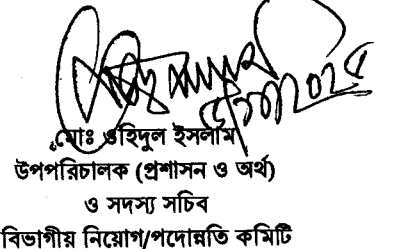 মোঃ ওহিদুল ইসলাম
উপপরিচালক (প্রশাসন ও অর্থ)
ও সদস্য সচিব
বিভাগীয় নিয়োগ/পদোন্নতি কমিটি